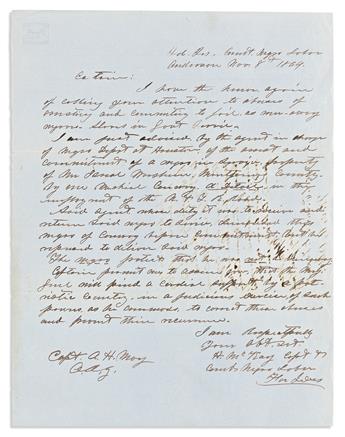 Hd. Qrs. Court. Negro Labor
Anderson Nov 8th 1864
Captain:
I have the honor again
of calling your attention to abuses of
arresting and commiting to jail, as run-away
negroes, Slaves in Govt Service.
I am just advised, by the agent in charge
of Negro Depot at Houston of the arrest and
commitment of a negro in Service, property
of Mr. Montgomery County,
By one Michael a Detail in the
employment of the R. Road.
Said agent, whose duty it was to receive and
return said negro to service, demanded the
negro of Conroy before commitment, but he
refused to deliver said negro.
The Negro protests that he was not
Captain permit me to assure you, that the Maj
Genl will find a cordial support, by a pat-
riotic Country, in a judicious exercise of such
powers, as he commands, to correct these abuses
and prevent their recurrence.
I am Respectfully
Your Obt. Svt
Capt. A. H. May
A. A. G.
H. McKay Capt &
Negro Labor